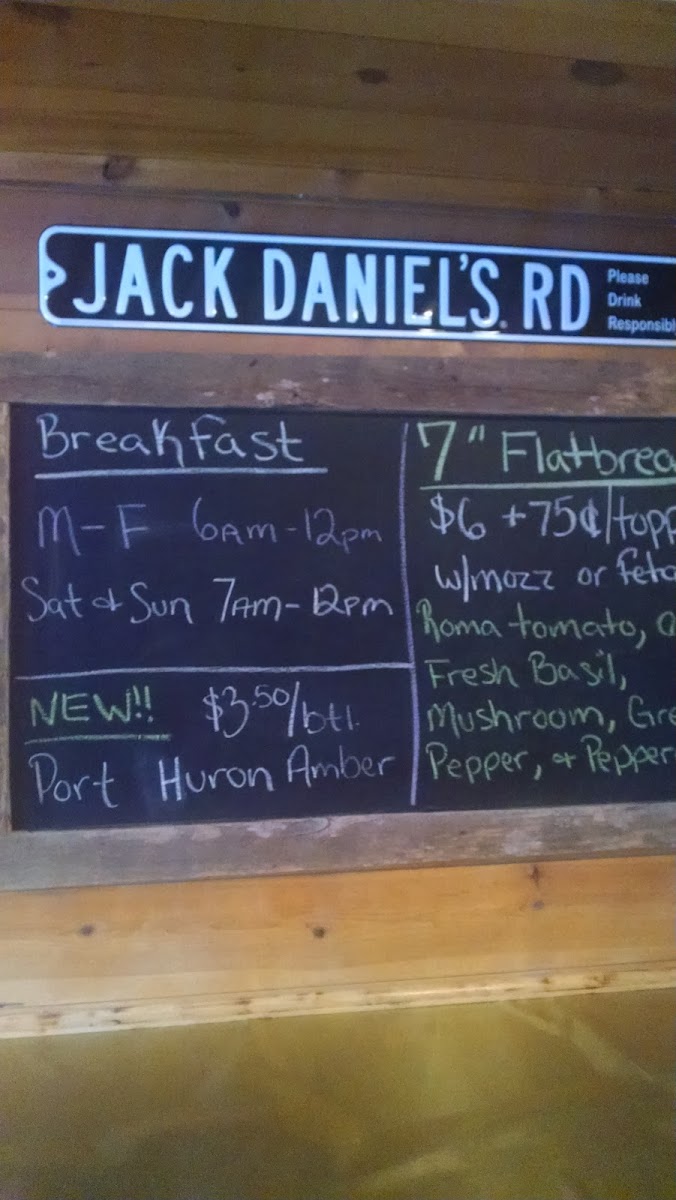 JACK DANIEL'S RD
Please
Drink
Responsibl
Breakfast
M-F 6AM-12pm
Sat & Sun 7AM-12pm
NEW!! $3.50/btl.
Port Huron Amber
7" Flatbrea
$6 +75¢/topp
w/mozz or feta
Roma tomato,
Fresh Basil,
Mushroom, Gre
Pepper, & Pepper